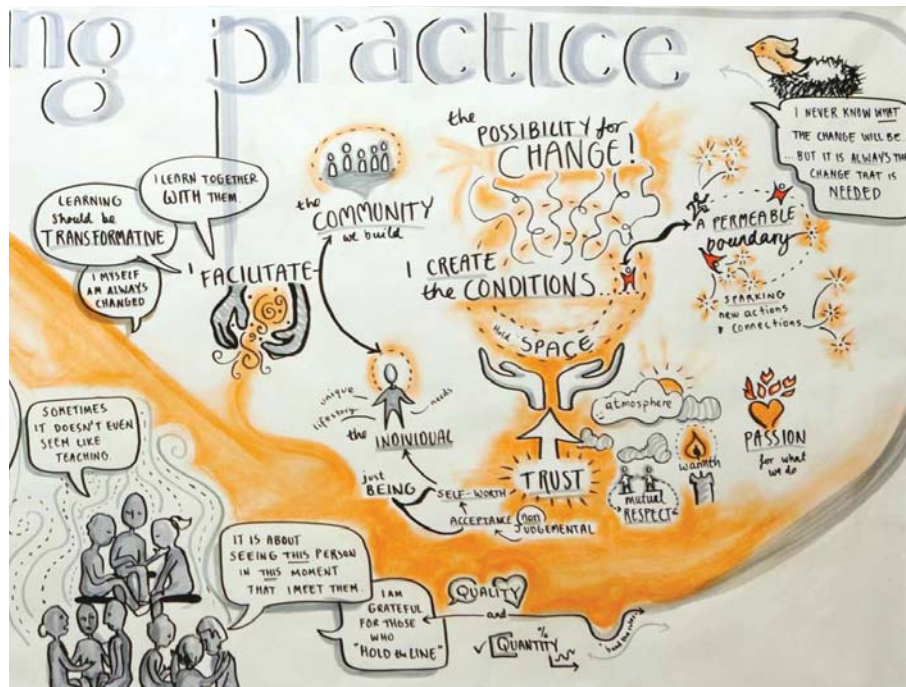 ng practice
I NEVER KNOW WHAT
THE CHANGE WILL BE...
... BUT IT IS ALWAYS THE
CHANGE THAT IS
NEEDED
the
POSSIBILITY for
CHANGE!
I LEARN TOGETHER
WITH THEM.
LEARNING
should be
TRANSFORMATIVE
I MYSELF
AM ALWAYS
CHANGED
I FACILITATE
the
COMMUNITY
we build
I CREATE
the CONDITIONS...
Hold SPACE
A PERMEABLE
boundary
SPARKING
new actions
& connections
unique
lifestory
needs
the INDIVIDUAL
just
BEING
SELF-WORTH
ACCEPTANCE
non
JUDGEMENTAL
TRUST
atmosphere
mutual
RESPECT
warmth
PASSION
for what
we do
SOMETIMES
IT DOESN'T EVEN
SEEM LIKE
TEACHING
IT IS ABOUT
SEEING THIS PERSON
IN THIS MOMENT
THAT I MEET THEM.
I AM
GRATEFUL
FOR THOSE
WHO
"HOLD the LINE"
QUALITY
and
QUANTITY
%